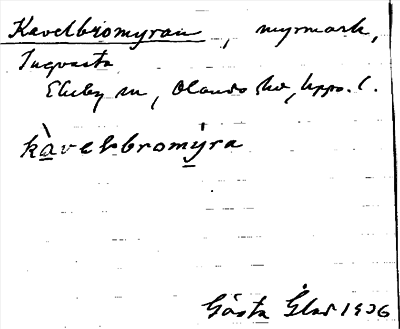 Kavelbromyran, myrmark,
Ingvasta
Ekeby sn, Olands hd, Upps. l.
kàvelbromýra
Gösta 1936